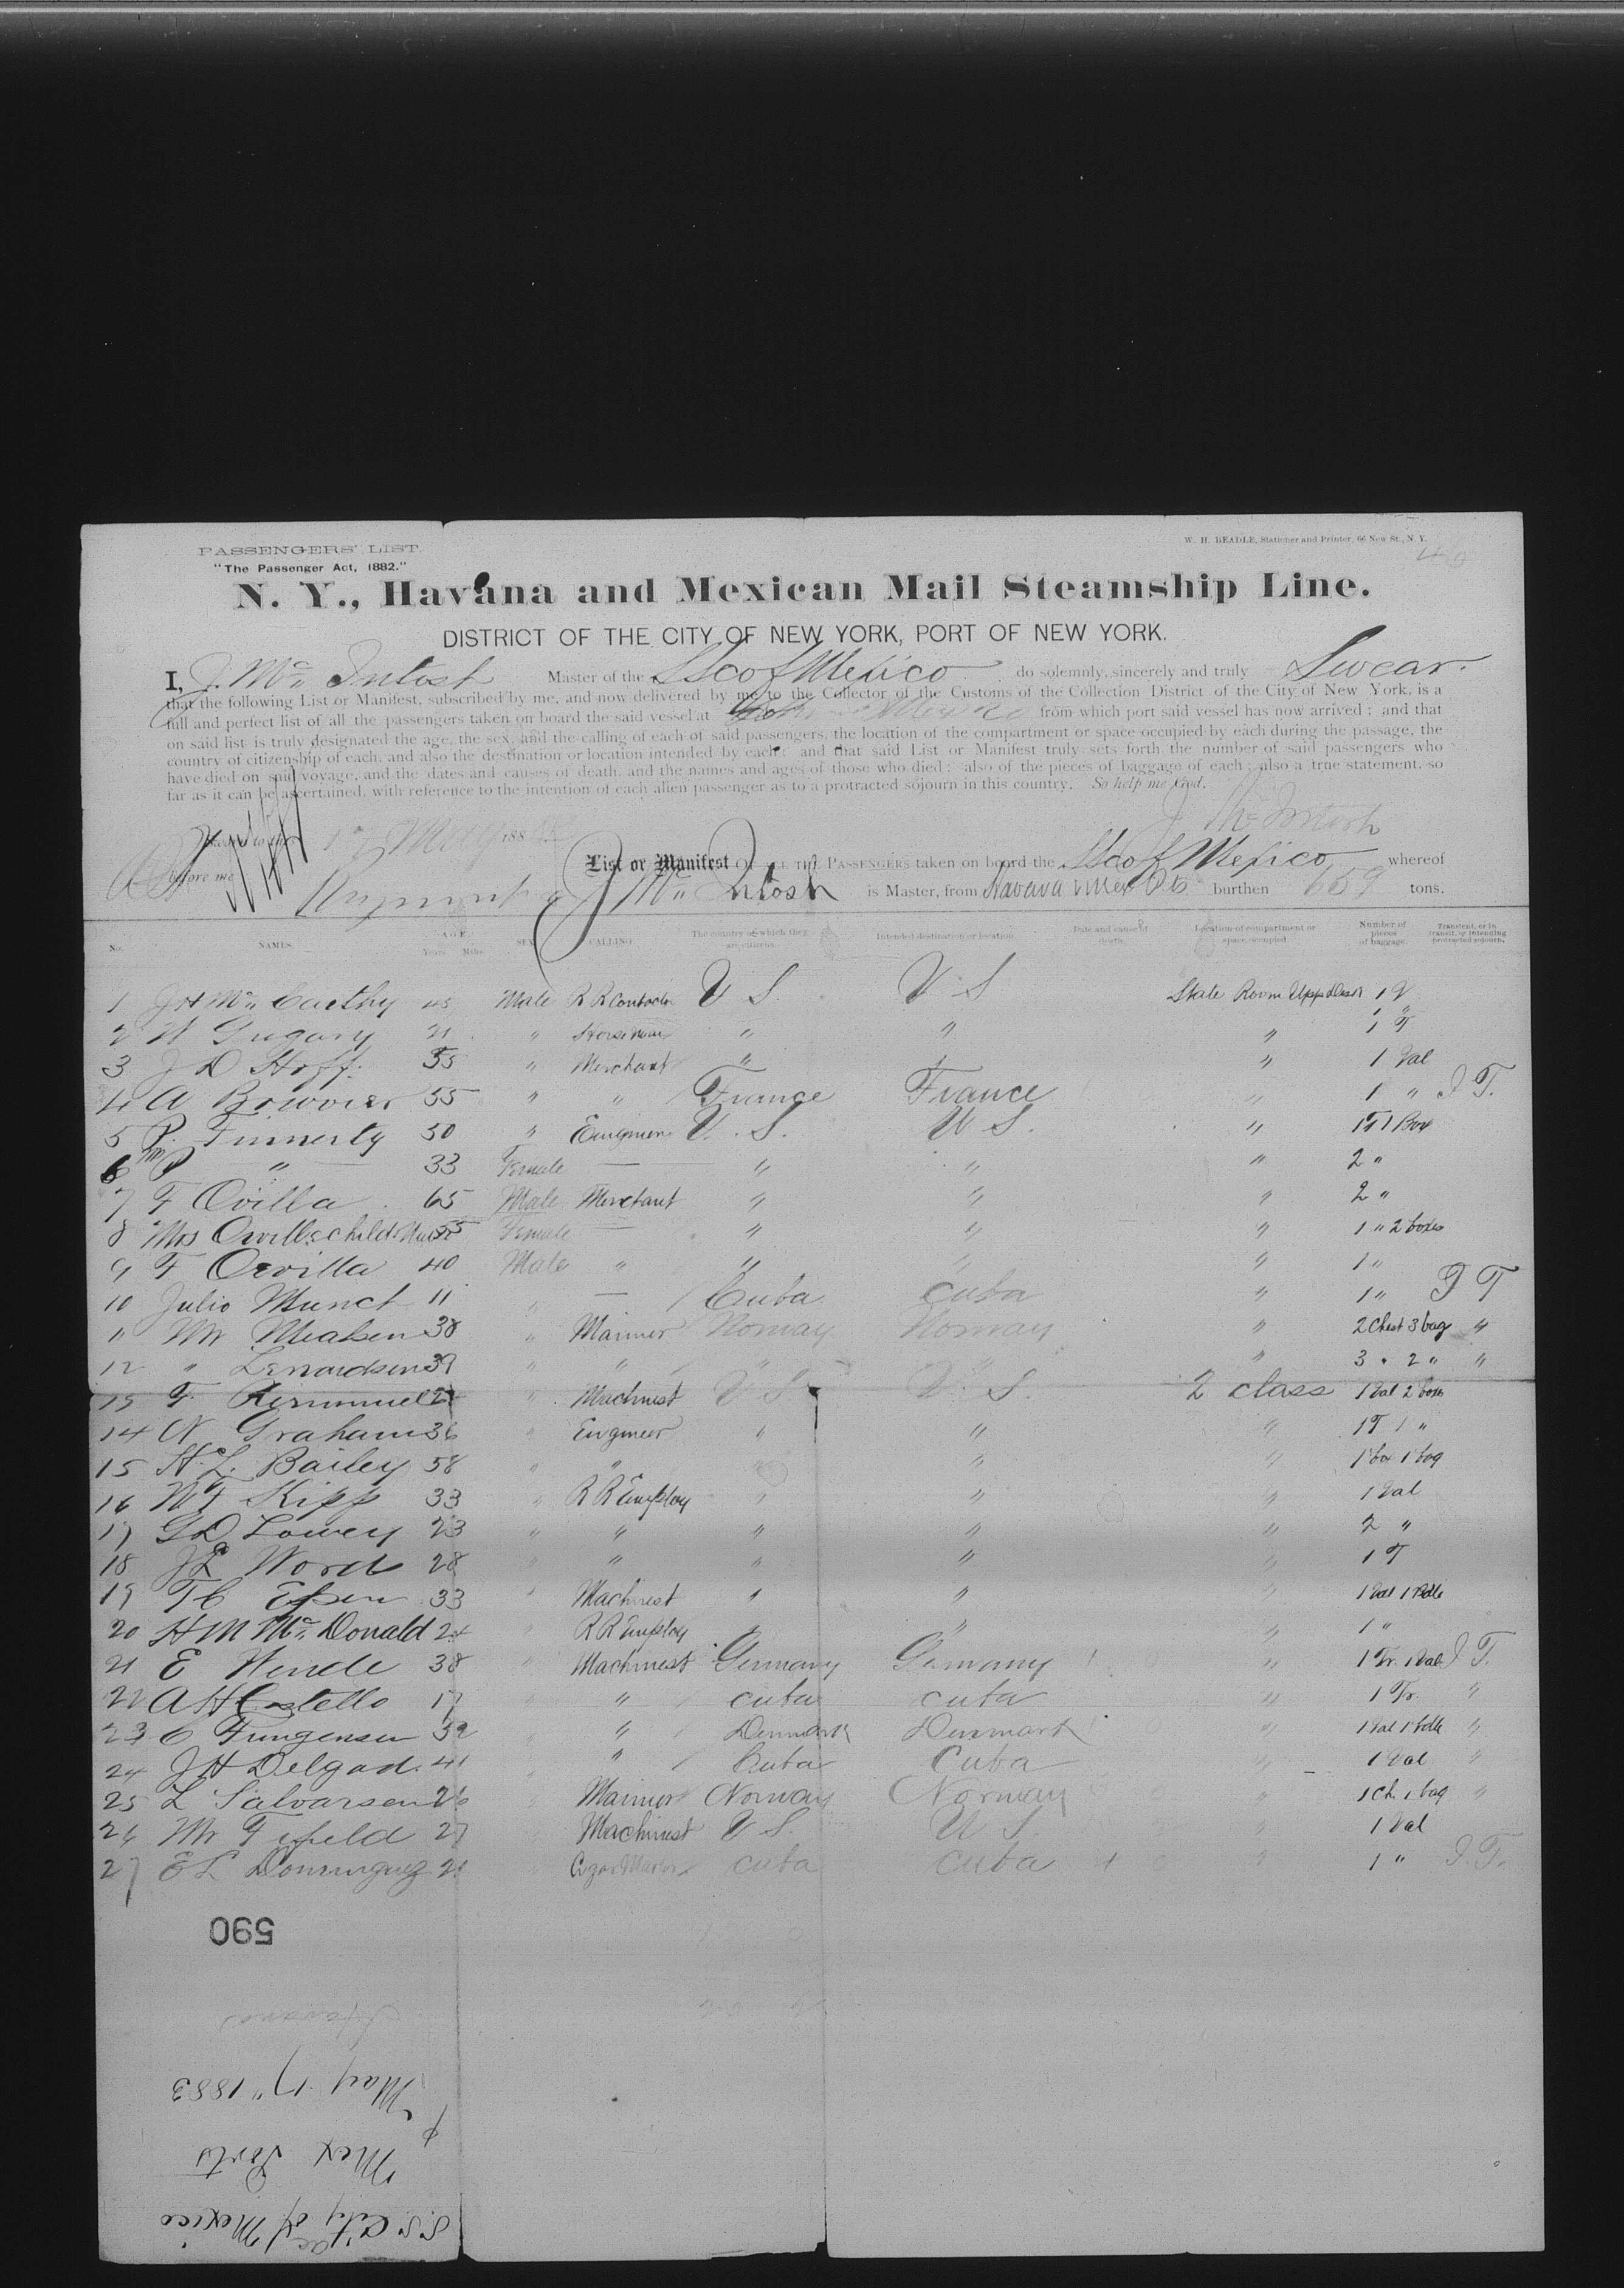 PASSENGERS' LIST.
W. H. BEADLE, Stationer and Printer, 66 New St., N. Y.
"The Passenger Act, 1882."
N. Y., Havana and Mexican Mail Steamship Line.
DISTRICT OF THE CITY OF NEW YORK, PORT OF NEW YORK.
I, J. Mc Intosh Master of the SS C of Mexico do solemnly, sincerely and truly Swear.
that the following List or Manifest, subscribed by me, and now delivered by me to the Collector of the Customs of the Collection District of the City of New York, is a
full and perfect list of all the passengers taken on board the said vessel at from which port said vessel has now arrived; and that
on said list is truly designated the age, the sex, and the calling of each of said passengers, the location of the compartment or space occupied by each during the passage, the
country of citizenship of each, and also the destination or location intended by each; and that said List or Manifest truly sets forth the number of said passengers who
have died on said voyage, and the dates and causes of death, and the names and ages of those who died; also of the pieces of baggage of each; also a true statement, so
far as it can be ascertained, with reference to the intention of each alien passenger as to a protracted sojourn in this country. So help me God.
J Mc Intosh
Sworn to this 17 May 188
before me
List or Manifest OF ALL THE PASSENGERS taken on board the SS C of Mexico whereof
J Mc Intosh is Master, from Havana & Mex Pts burthen 659 tons.
No. NAMES. AGE. Years Mths. SEX. CALLING. The country of which they are citizens. Intended destination or location. Date and cause of death. Location of compartment or space occupied. Number of pieces of baggage. Transient, or in transit, or intending protracted sojourn.
1 J H Mc Carthy 45 Male R R Contractor U S U S State Room Upp Deck 1 V
2 W Gugary 21 " Horseman " " " 1 T
3 J D Hoff 35 " Merchant " " 1 Val
4 A Bowvier 55 " " France France " 1 " I T.
5 P. Finnerty 50 " Engineer U. S. U S. " 1 T 1 Box
6 Mrs P " 33 Female — " " " 2 "
7 F Ovilla 65 Male Merchant " " " 2 "
8 Mrs Orvilla child & Nurse 55 Female — " " " 1 " 2 boxes
9 F Orvilla 40 Male " " " " 1 "
10 Julio Munch 11 " — Cuba Cuba " 1 " I T
11 Mr Meahen 38 " Mariner Norway Norway " 2 Chest 3 bag "
12 " Lenardsen 39 " " " " " 3 " 2 " "
13 F. " Machinest U S U. S. 2 class 1 Val 2 boxes
14 N Graham 36 " Engineer " " " 1 T 1 "
15 H. L. Bailey 58 " " " " " 1 box 1 bag
16 W F Kipp 33 " R R Employ " " " 1 Val
17 G D Lowery 23 " " " " " 2 "
18 J L Words 28 " " " " " 1 T
19 T C Epen 33 " Machinest " " " 1 Val 1 Bdle
20 H M Mc Donald 24 " R R Employ " " " 1 "
21 E Wende 38 " Machinest Germany Germany " 1 Tr. 1 Val I T.
22 A H Costello 17 " " Cuba Cuba " 1 Tr. "
23 C Fungensen 32 " " Denmark Denmark " 1 Val 1 bdle "
24 J H Delgad. 41 " " Cuba Cuba " 1 Val "
25 L Salvarsen 26 " Mariner Norway Norway " 1 Ch. 1 bag "
26 Mr Fifield 27 " Machinest U S. U S " 1 Val
27 E L Dominguez 21 Cigar Maker Cuba Cuba " 1 " I. T.
590
Havana
May 17" 1883
&
Mex Ports
S.S. City of Mexico